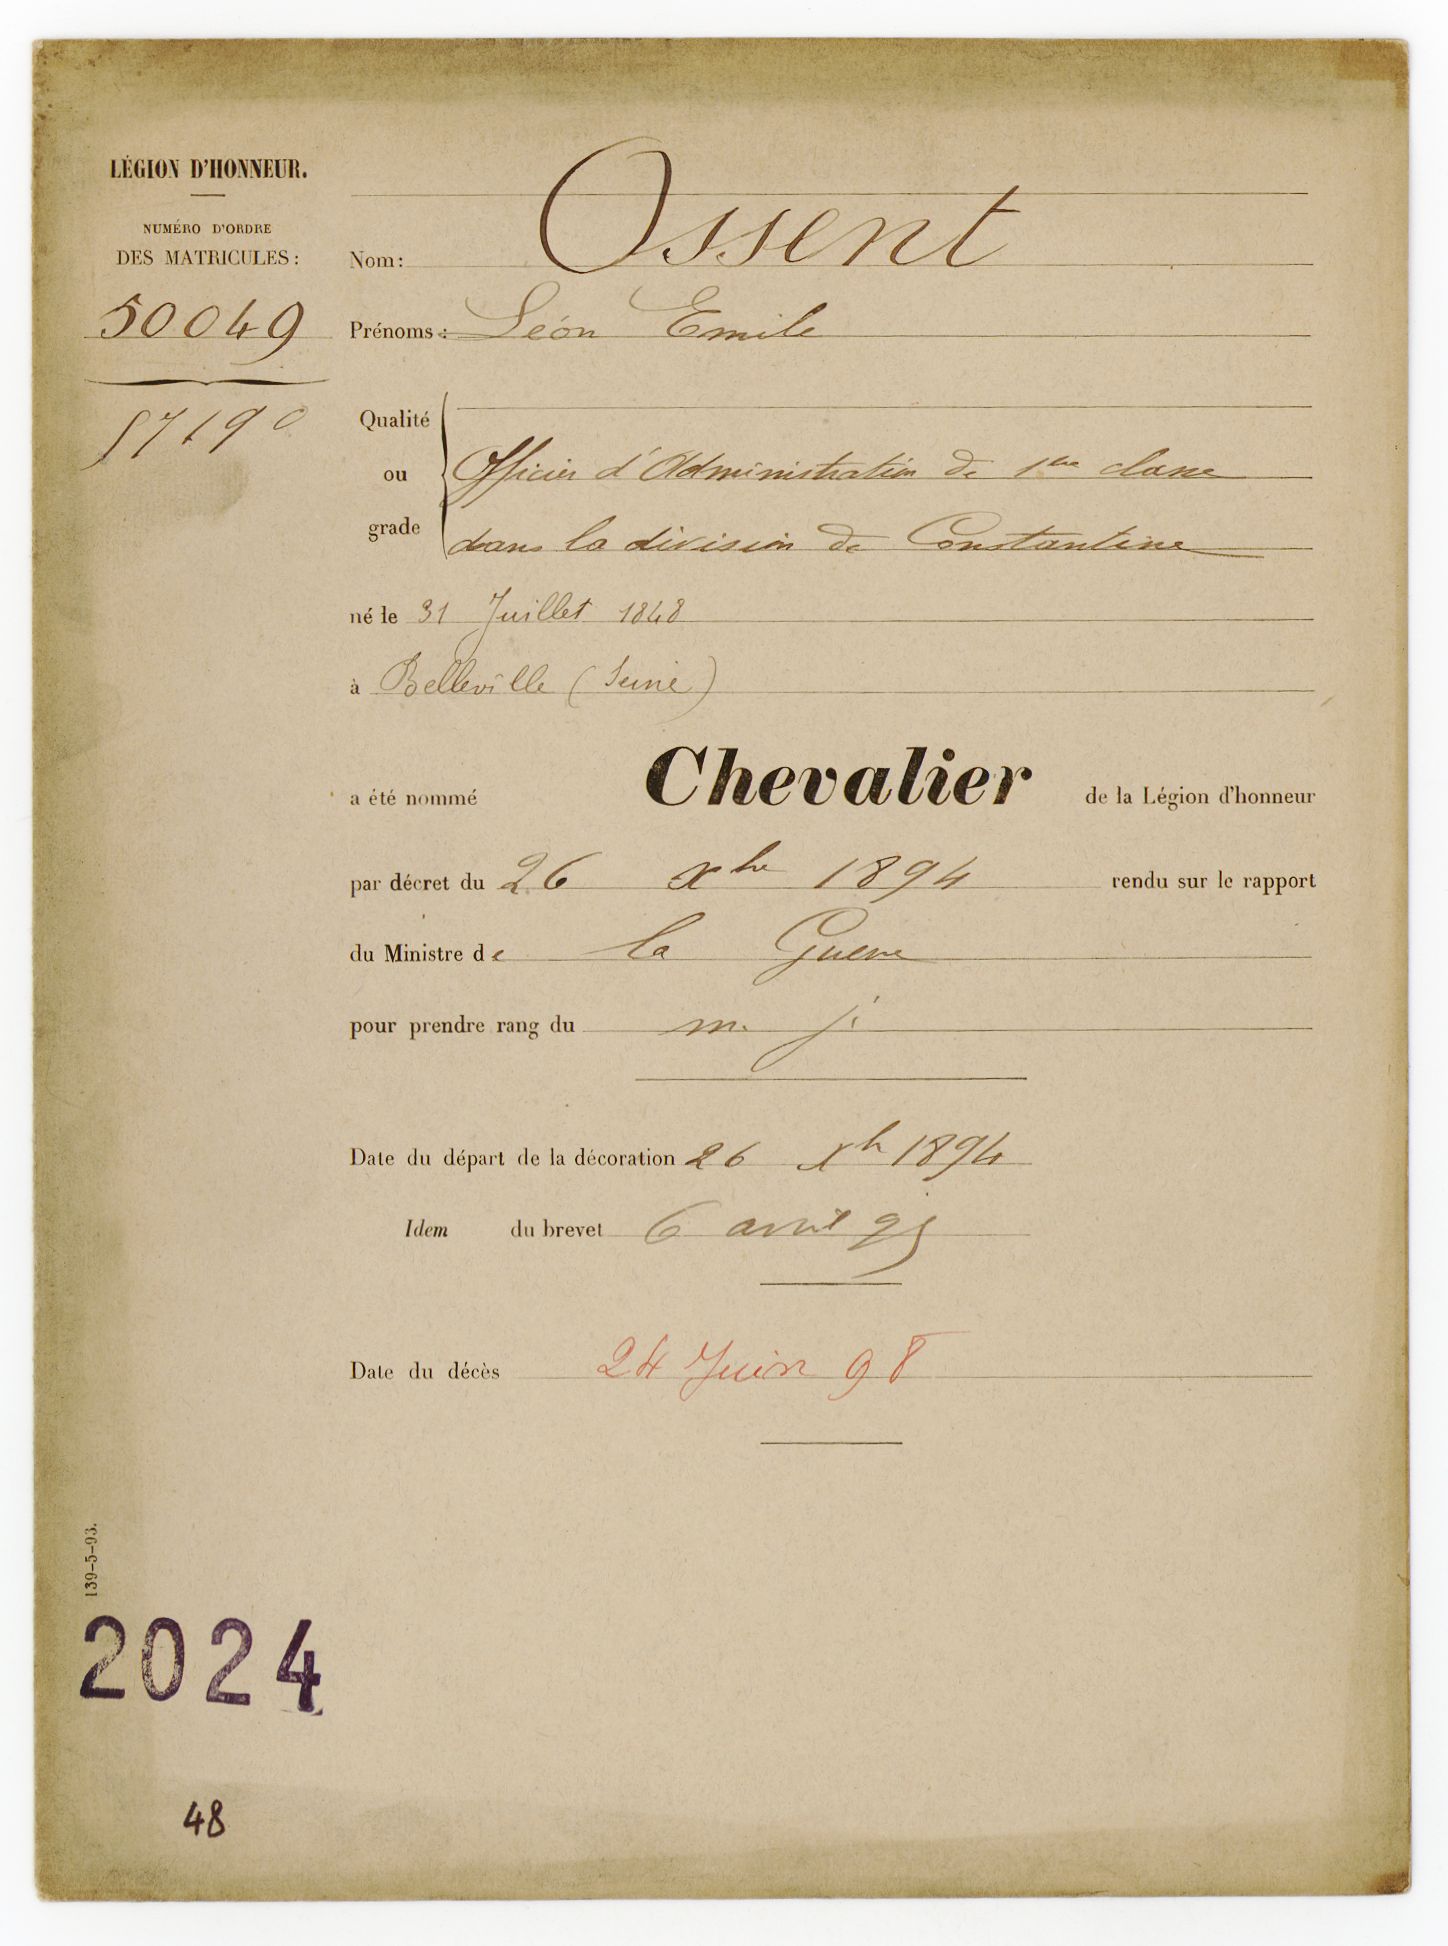 LÉGION D'HONNEUR.
NUMÉRO D'ORDRE
DES MATRICULES :
50049
57190
Nom : Ossent
Prénoms : Léon Emile
Qualité ou grade
Officier d'Administration de 1ère classe
dans la division de Constantine
né le 31 Juillet 1848
à Belleville (Seine)
a été nommé Chevalier de la Légion d'honneur
par décret du 26 Xbre 1894 rendu sur le rapport
du Ministre de la Guerre
pour prendre rang du m. j.
Date du départ de la décoration 26 Xbre 1894
Idem du brevet 6 avril 95
Date du décès 24 Juin 98
139-5-93.
2024
48